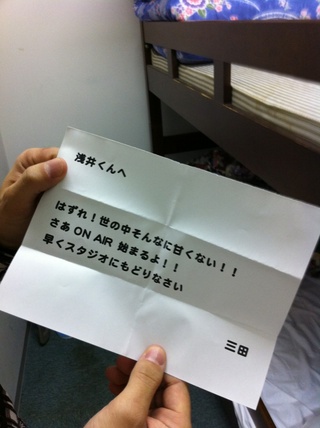 浅井くんへ
はずれ!世の中そんなに甘くない!!
さあ ON AIR 始まるよ!!
早くスタジオにもどりなさい
三田